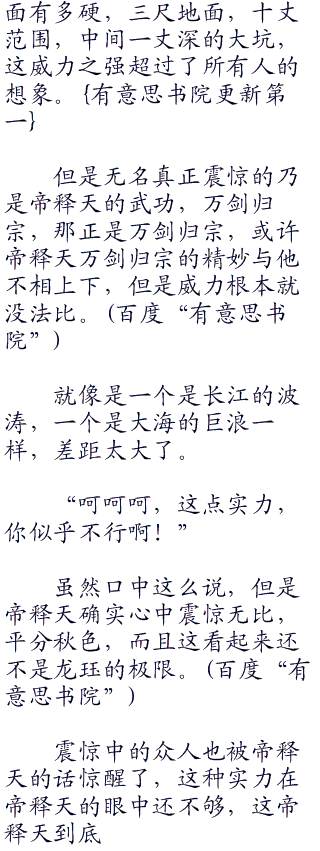 面有多硬，三尺地面，十丈
范围，中间一丈深的大坑，
这威力之强超过了所有人的
想象。{有意思书院更新第
一}
但是无名真正震惊的乃
是帝释天的武功，万剑归
宗，那正是万剑归宗，或许
帝释天万剑归宗的精妙与他
不相上下，但是威力根本就
没法比。(百度“有意思书
院”)
就像是一个是长江的波
涛，一个是大海的巨浪一
样，差距太大了。
“呵呵呵，这点实力，
你似乎不行啊！”
虽然口中这么说，但是
帝释天确实心中震惊无比，
平分秋色，而且这看起来还
不是龙珏的极限。(百度“有
意思书院”)
震惊中的众人也被帝释
天的话惊醒了，这种实力在
帝释天的眼中还不够，这帝
释天到底